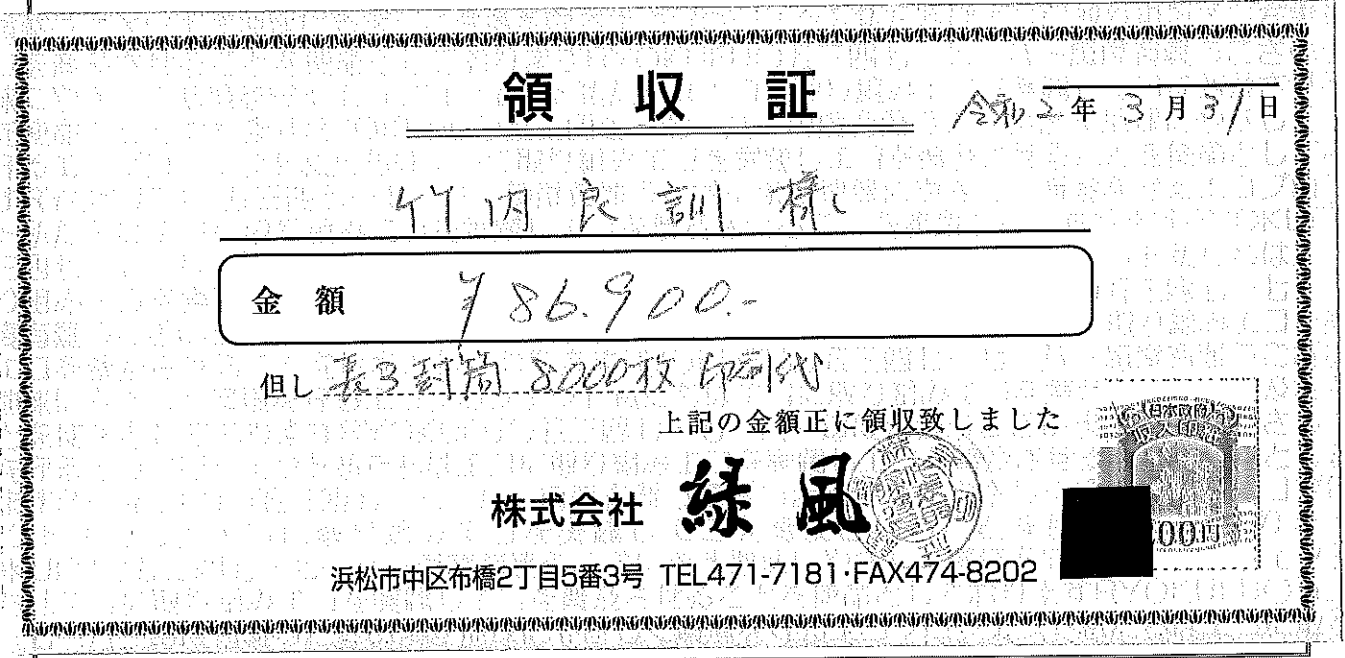 領収証
令和2年3月31日
竹内良訓 様
金額 ¥86.900.-
但し 長3封筒 8000枚 印刷代
上記の金額正に領収致しました
株式会社 緑風
浜松市中区布橋2丁目5番3号 TEL471-7181・FAX474-8202
日本政府
収入印紙
200円